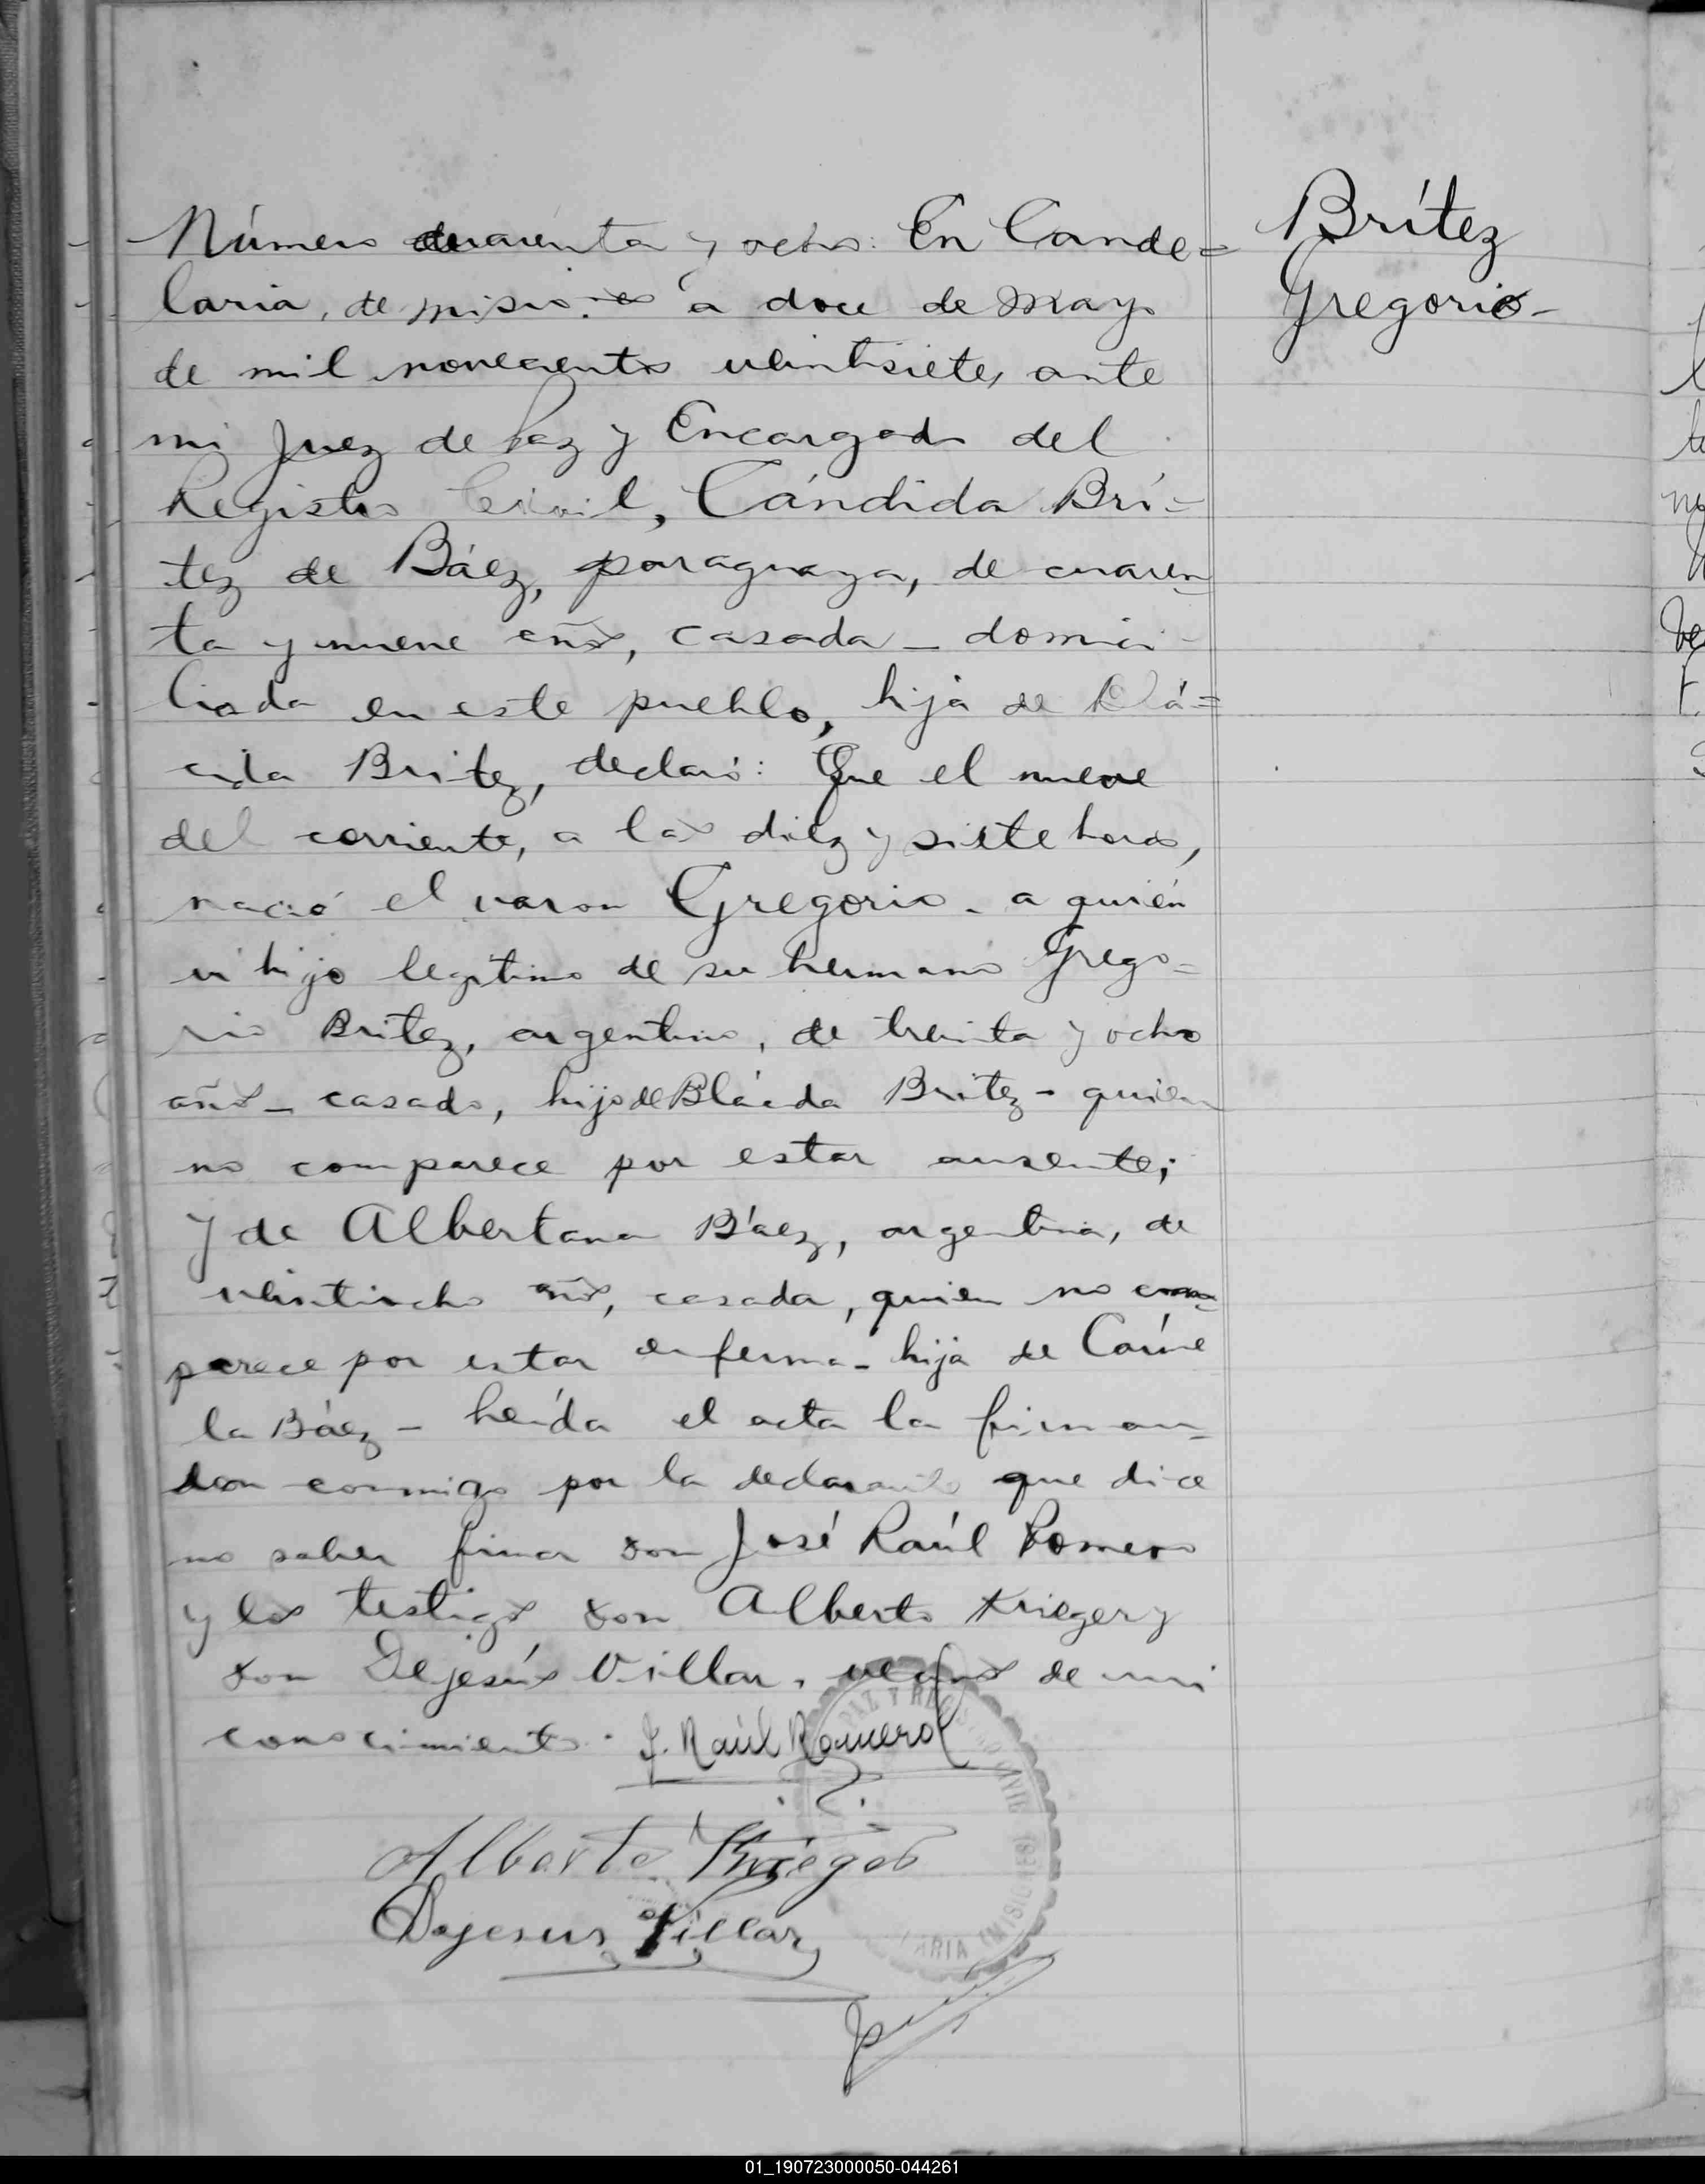 Brítez
Gregorio-
Número cuarenta y ocho: En Cande=
laria, de Misiones a doce de Mayo
de mil novecientos veintisiete, ante
mi Juez de Paz y Encargado del
Registro Civil, Cándida Brí-
tez de Báez, paraguaya, de cuaren-
ta y nueve años, casada - domici-
liada en este pueblo, hija de Blá=
cida Britez, declaró: Que el nueve
del corriente, a las diez y siete horas,
nació el varon Gregorio - a quién
vi hijo legítimo de su hermano Grego=
rio Britez, argentino, de treinta y ocho
años - casado, hijo de Blácida Britez - quien
no comparece por estar ausente;
y de Albertana Báez, argentina, de
veintiocho años, casada, quien no com-
parece por estar enferma - hija de Carme
la Báez - Leída el acta la firman-
don conmigo por la declarante que dice
no saber firmar don José Raúl Romero
y los testigos don Alberto Krieger y
don Dejesús Villar, vecinos de mi
conocimiento. J. Raúl Romero
Alberto Krieger
Dejesus Villar
PAZ Y REGISTRO CIVIL
LARIA (MISIONES)
01_190723000050-044261